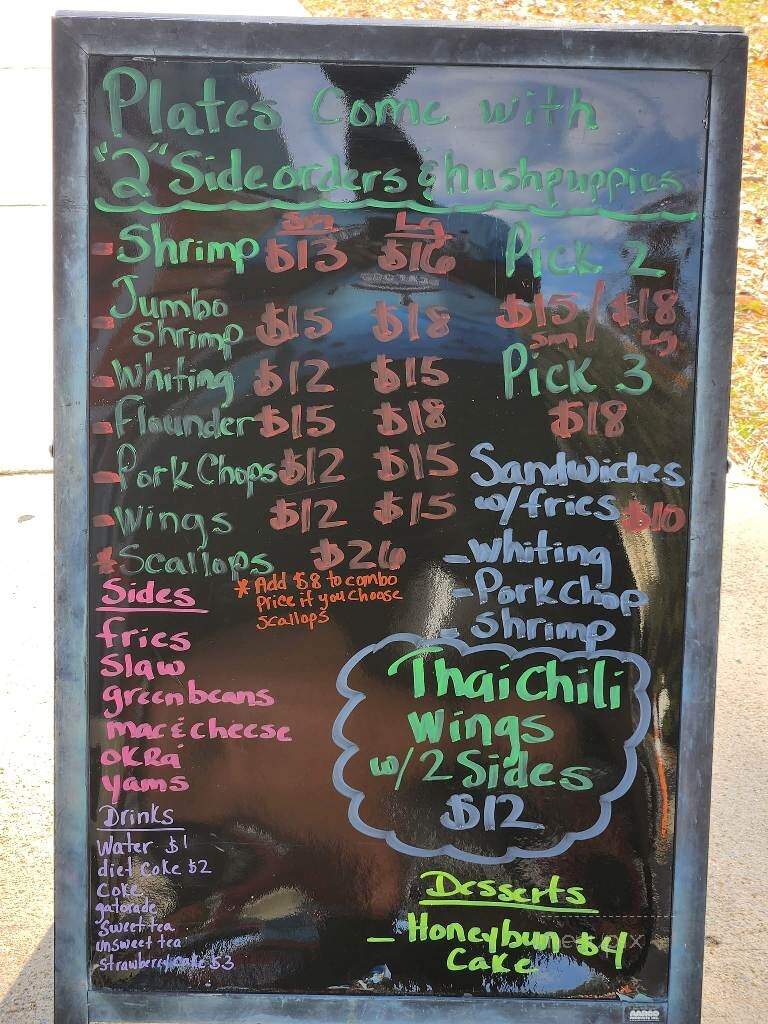 Plates Come with
"2" Side orders & hushpuppies
Sm Lg
- Shrimp $13 $16
- Jumbo shrimp $15 $18
- Whiting $12 $15
- Flounder $15 $18
- Pork Chops $12 $15
- Wings $12 $15
* Scallops $26
* Add $8 to combo
Price if you choose
Scallops
Pick 2
$15/$18
Sm Lg
Pick 3
$18
Sandwiches
w/fries $10
- Whiting
- Porkchop
- Shrimp
Sides
fries
Slaw
greenbeans
mac & cheese
OKRa
yams
Thai Chili
Wings
w/2 Sides
$12
Drinks
Water $1
diet Coke $2
Coke
gatorade
Sweet tea
unsweet tea
Desserts
- Honeybun $4
Cake